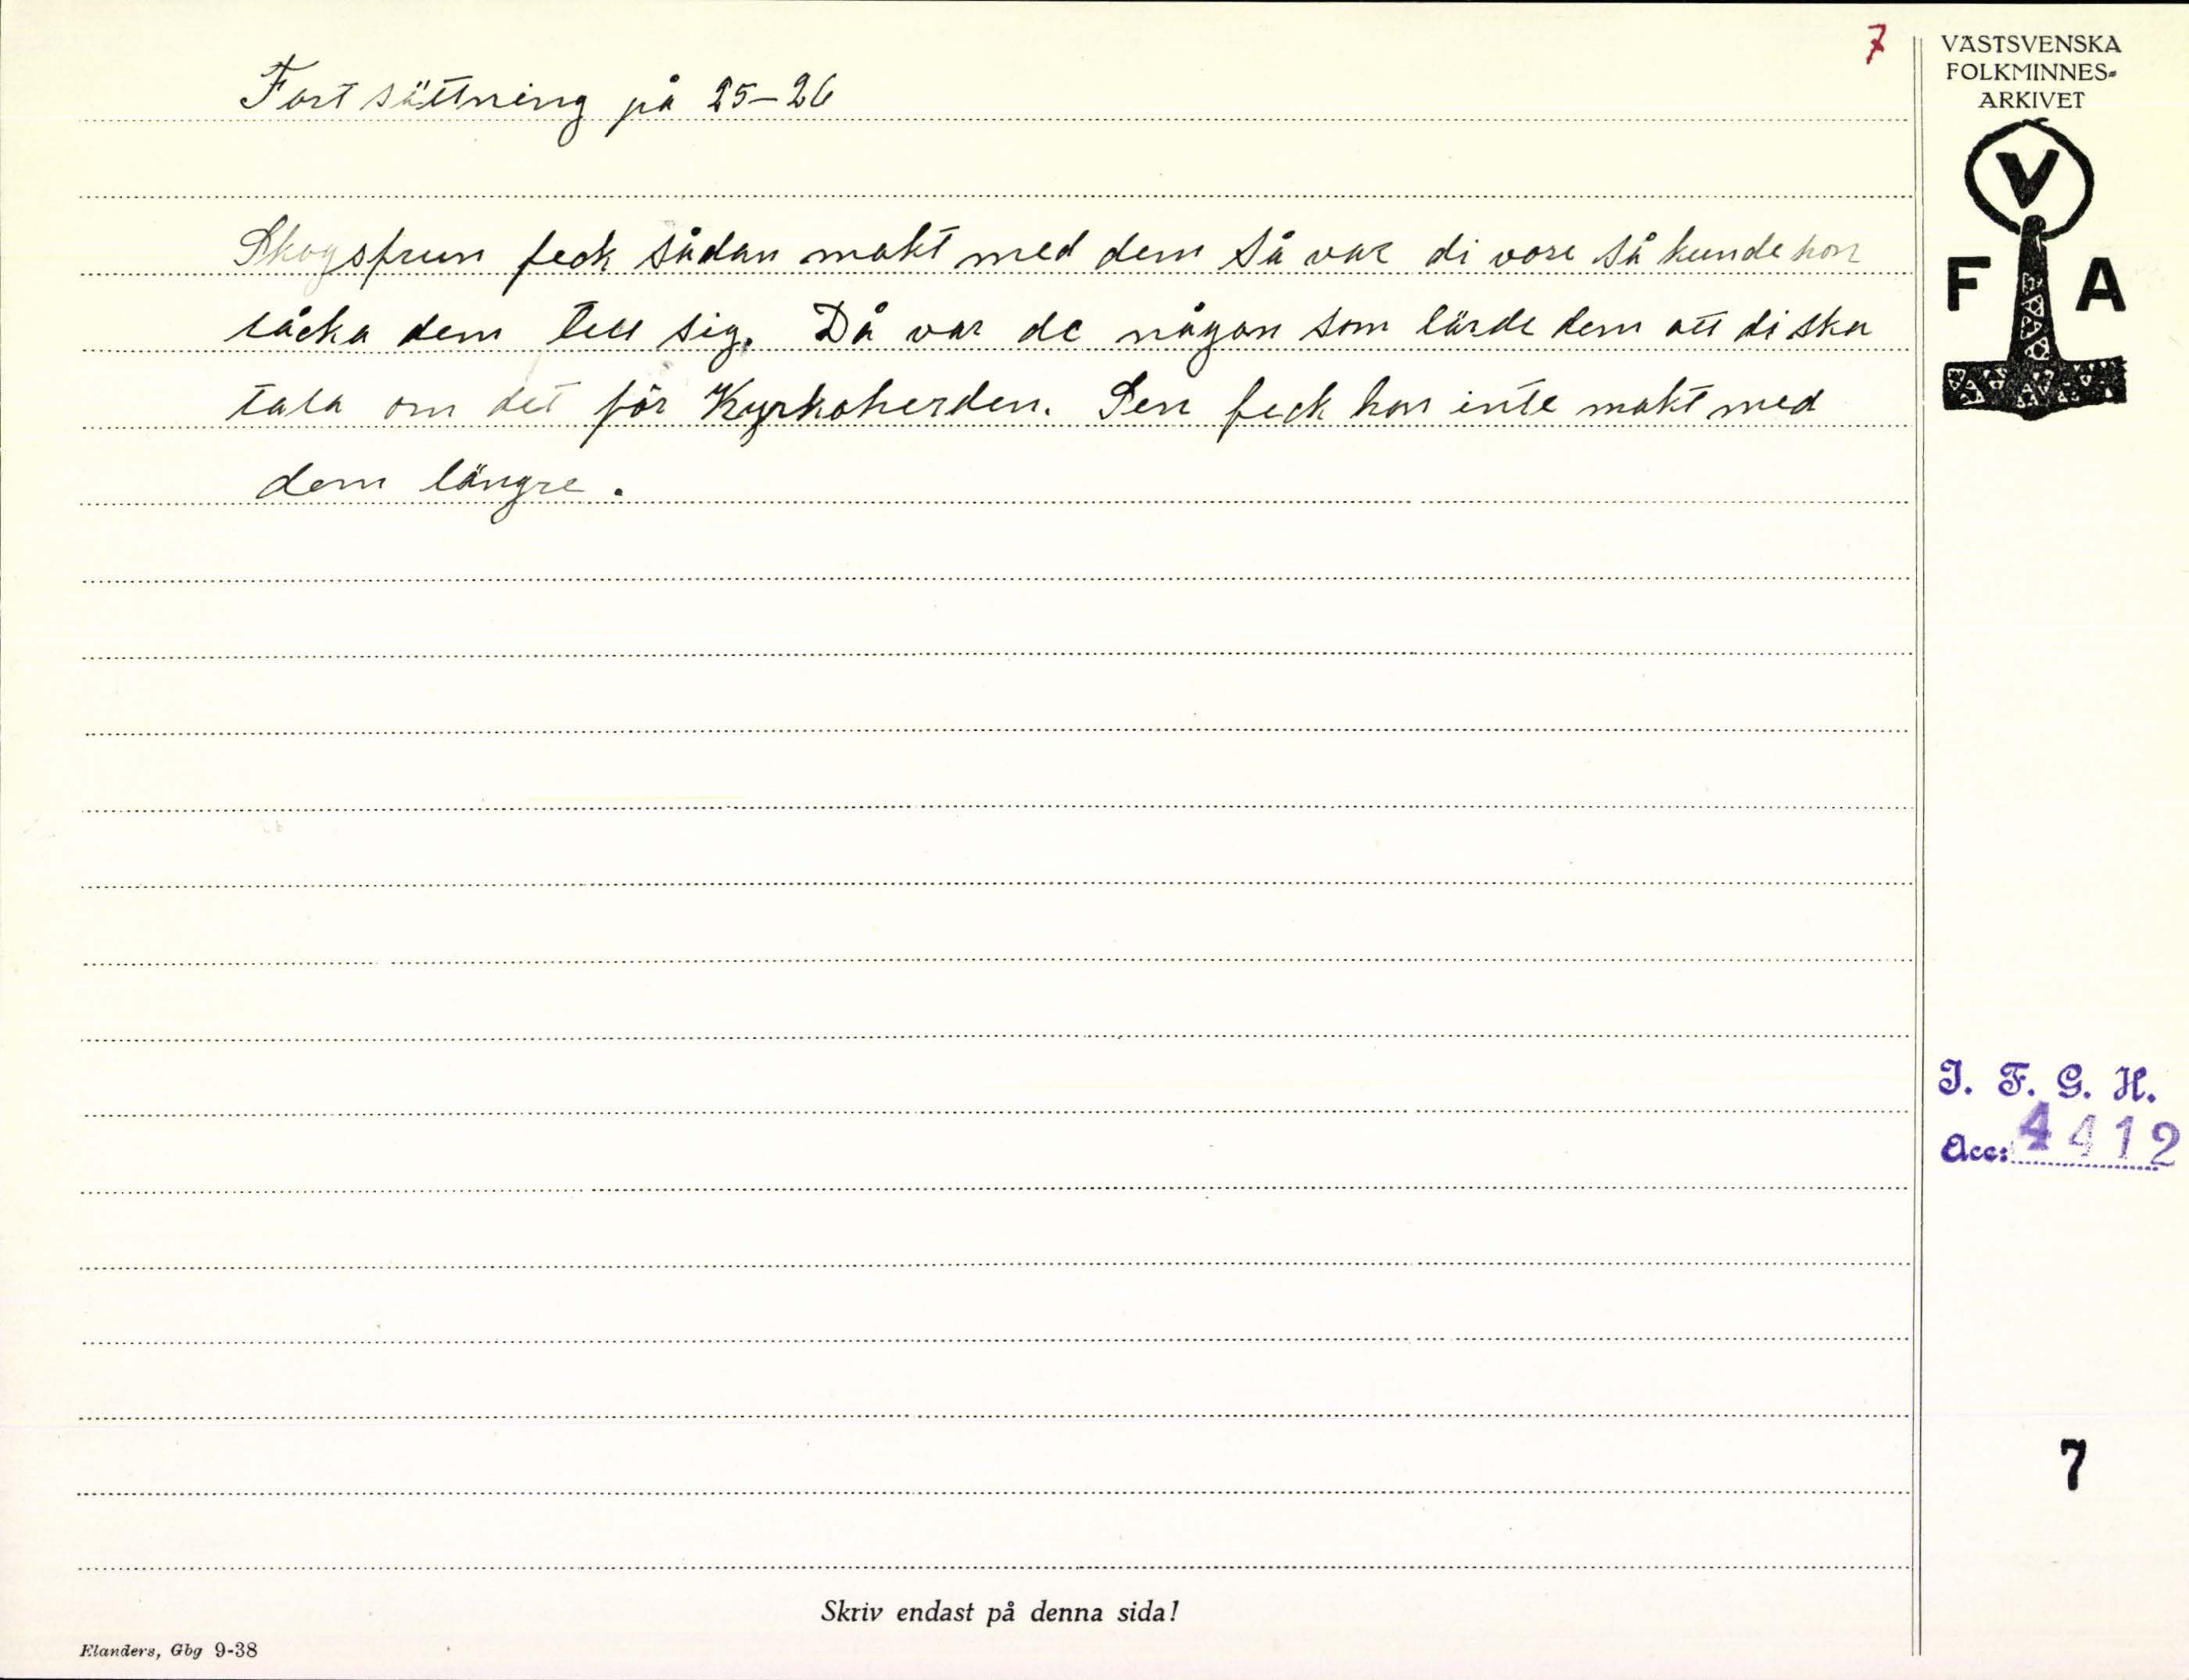 7
Fortsättning på 25-26
Skogsfrun feck sådan makt med dem så var di vore så kunde hon
låcka dem till sig. Då var de någon som lärde dem att di ska
tala om det för Kyrkoherden. Sen feck hon inte makt med
dem längre.
VÄSTSVENSKA
FOLKMINNES-
ARKIVET
V
F A
I. F. G. H.
Acc: 4412
7
Skriv endast på denna sida!
Elanders, Gbg 9-38